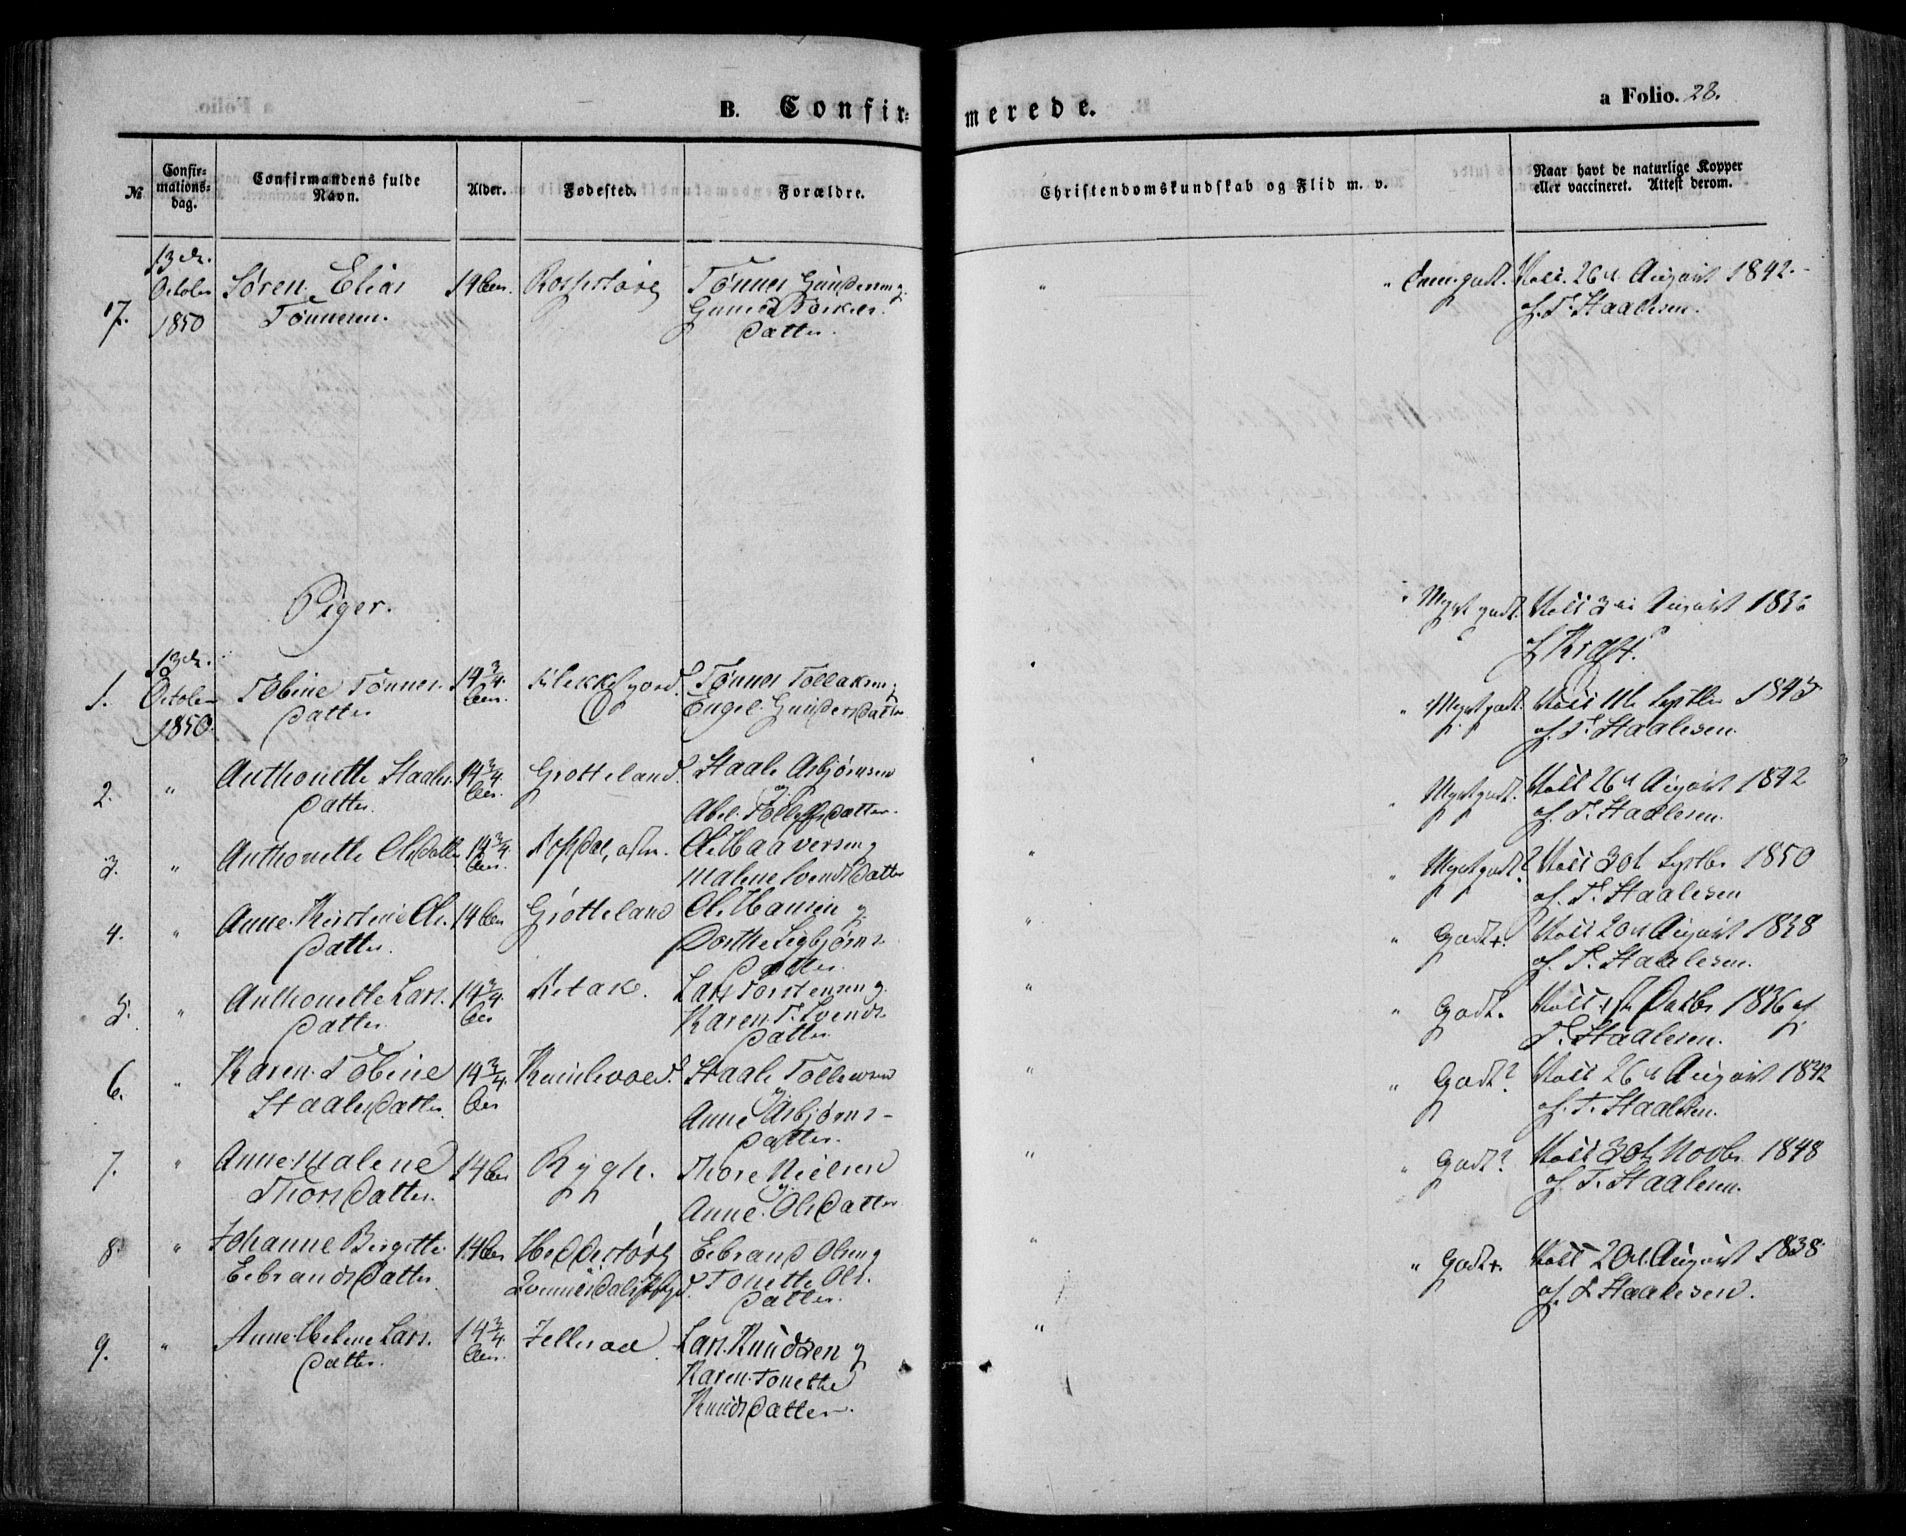 B. Confir-merede.
a Folio. 28.
№
Confir-
mations-
dag.
Confirmandens fulde
Navn.
Alder.
Fødested.
Forældre.
Christendomskundskab og Flid m. v.
Naar havt de naturlige Kopper
eller vaccineret. Attest derom.
17.
13de
October
1850
Søren Elias
Tønnesen.
19 Aar.
Tønnes Gundersen og
Gunild
Datter.
" " godt. Vacc. 26de August 1842.
af T. Staalesen.
Piger.
1.
13de
October
1850.
Tobine Tønnes-
datter
14 3/4
Aar.
Flekkefjord.
Tønnes Tollaksen og
Engel Gundersdatter
" Meget godt. Vacc. 3die August 1836
af Kraft.
2. " Anthonette Staales-
datter.
14 3/4
Aar.
Grøtteland.
Staale Asbjørnsen
og
Abel Tollefsdatter.
" Meget godt. Vacc. 11te Septbr 1843
af T. Staalesen.
3. " Anthonette Olsdatter
14 3/4
Aar.
Ole Haaversen og
Malene Svendsdatter
" Meget godt. Vacc. 26de August 1842
af T. Staalesen.
4. " Anne Kirstine Ols-
datter.
14 Aar
Grøtteland
Ole Hansen og
Dorthe Sigbjørns-
datter.
" Meget godt? Vacc. 30te Septbr 1850
af T. Staalesen
5. " Anthonette Lars-
datter.
14 3/4
Aar
Lars Torstensen og
Karen T. Svends-
datter.
" Godt+. Vacc. 20de August 1838
af T. Staalesen.
6. " Karen Tobine
Staalesdatter.
14 3/4
Aar
Staale Tollevsen
og
Anne Asbjørns-
datter.
" Godt. Vacc. Octbr 1836 af
T. Staalesen.
7. " Anne Malene
Thorsdatter.
14 Aar
Rygh.
Thore Nielsen
og
Anne Olsdatter
" Godt? Vacc. 26de August 1842
af T. Staalesen.
8. " Johanne Birgitte
Eebrandsdatter.
14 Aar
Heddestøe
Eebrand Olsen og
Tonette Ols-
datter.
" Godt? Vacc. 30te Novbr 1848
af T. Staalesen.
9. " Anne Helene Lars-
datter.
14 3/4
Aar.
Lars Knudsen og
Karen Tonette
Knudsdatter.
" Godt+. Vacc. 20de August 1838
af T. Staalesen.